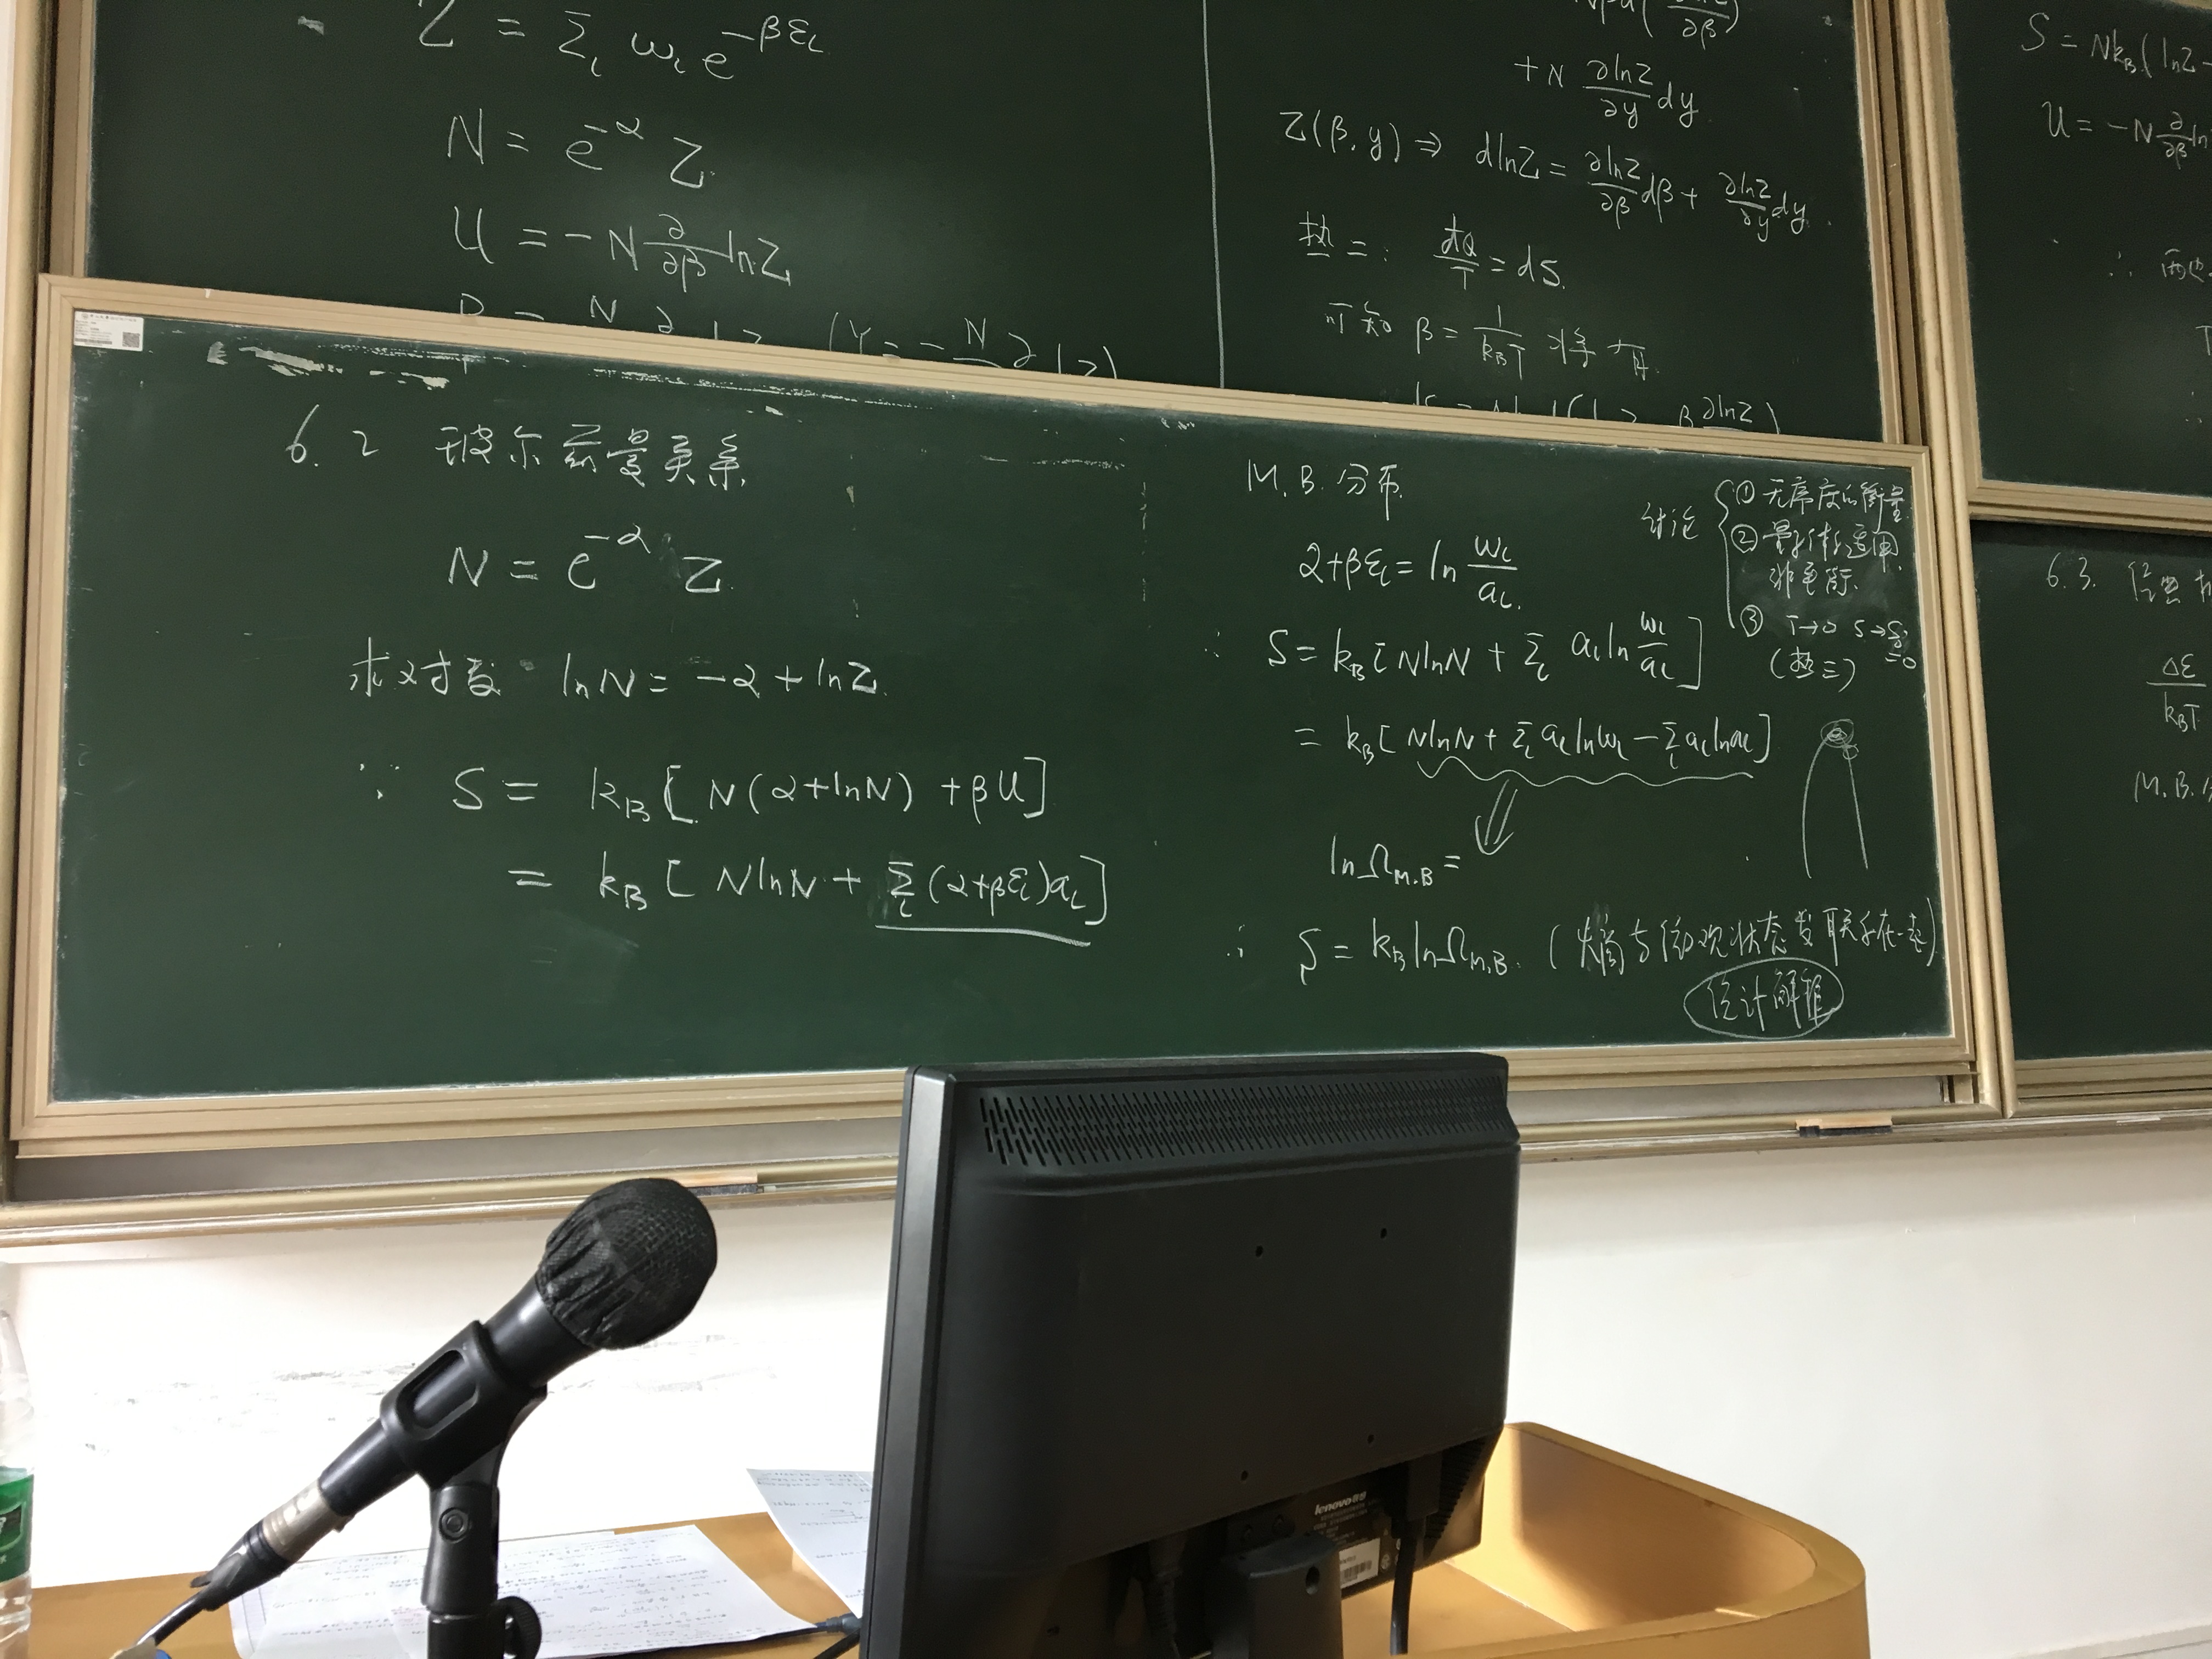 Z = Σ_l ω_l e^{-βε_l}
N = e^{-α} Z
U = -N ∂/∂β lnZ
+ N ∂lnZ/∂y dy
Z(β, y) ⇒ dlnZ = ∂lnZ/∂β dβ + ∂lnZ/∂y dy.
热二: đQ/T = dS.
可知 β = 1/k_BT
S = Nk_B(lnZ -
U = -N ∂/∂β ln
6.2 玻尔兹曼关系
N = e^{-α} Z.
求对数 lnN = -α + lnZ.
∵ S = k_B[N(α+lnN) + βU]
= k_B[NlnN + Σ_l(α+βε_l)a_l]
M.B. 分布
α+βε_l = ln ω_l/a_l.
∴ S = k_B[NlnN + Σ_l a_l ln ω_l/a_l]
= k_B[NlnN + Σ_l a_l lnω_l - Σ_l a_l lna_l]
lnΩ_{M.B} =
∴ S = k_B lnΩ_{M.B}. (熵与微观状态数联系在一起)
统计解释
讨论
① 无序度的衡量
② 量子体适用.
非电商.
③ T→0 S→S_0=0
(热三)
6.3.
Δε
k_BT
M.B.分
lenovo